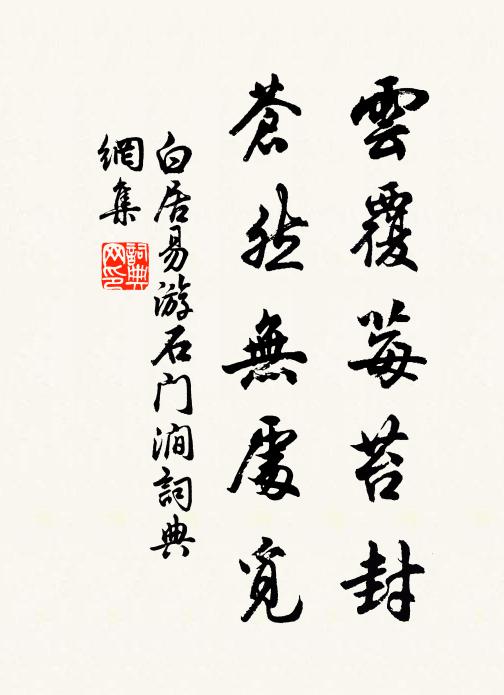 雲覆莓苔封
蒼然無處覓
白居易游石门澗詞典
網集
詞典
网印